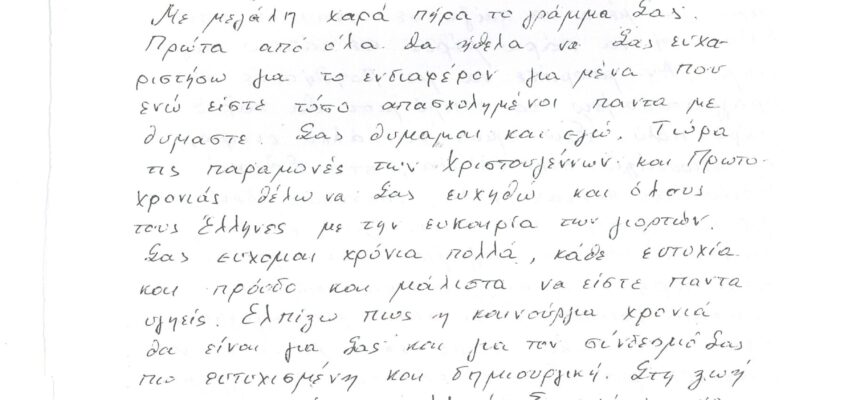 Με μεγάλη χαρά πήρα το γράμμα Σας.
Πρώτα από όλα θα ήθελα να Σας ευχα-
ριστήσω για το ενδιαφέρον για μένα που
ενώ είστε τόσο απασχολημένοι παντα με
θυμαστε. Σας θυμαμαι και εγώ. Τώρα
τις παραμονές των Χριστουγέννων και Πρωτο-
χρονιάς θέλω να Σας ευχηθώ και όλους
τους Έλληνες με την ευκαιρία των γιορτών.
Σας ευχομαι χρόνια πολλά, κάθε ευτυχία
και πρόοδο και μάλιστα να είστε παντα
υγιείς. Ελπίζω πως η καινούργια χρονιά
θα είναι για Σας και για τον σύνδεσμό Σας
πιο ευτυχισμένη και δημιουργική. Στη ζωή